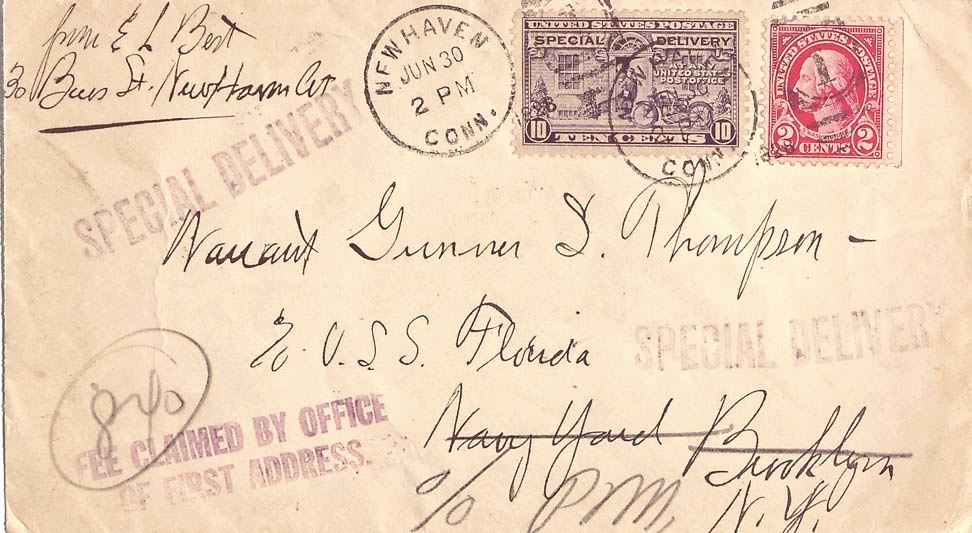 from E L Best
30 Bees St. New Haven Ct
NEW HAVEN
JUN 30
2 PM
CONN.
UNITED STATES POSTAGE
SPECIAL DELIVERY
AT ANY
UNITED STATES
POST OFFICE
10 TEN CENTS 10
CONN.
UNITED STATES POSTAGE
2 CENTS 2
SPECIAL DELIVERY
Warrant Gunner S. Thompson -
c/o U.S.S. Florida
SPECIAL DELIVERY
840
FEE CLAIMED BY OFFICE
OF FIRST ADDRESS.
Navy Yard Brooklyn
c/o P.M. N.Y.